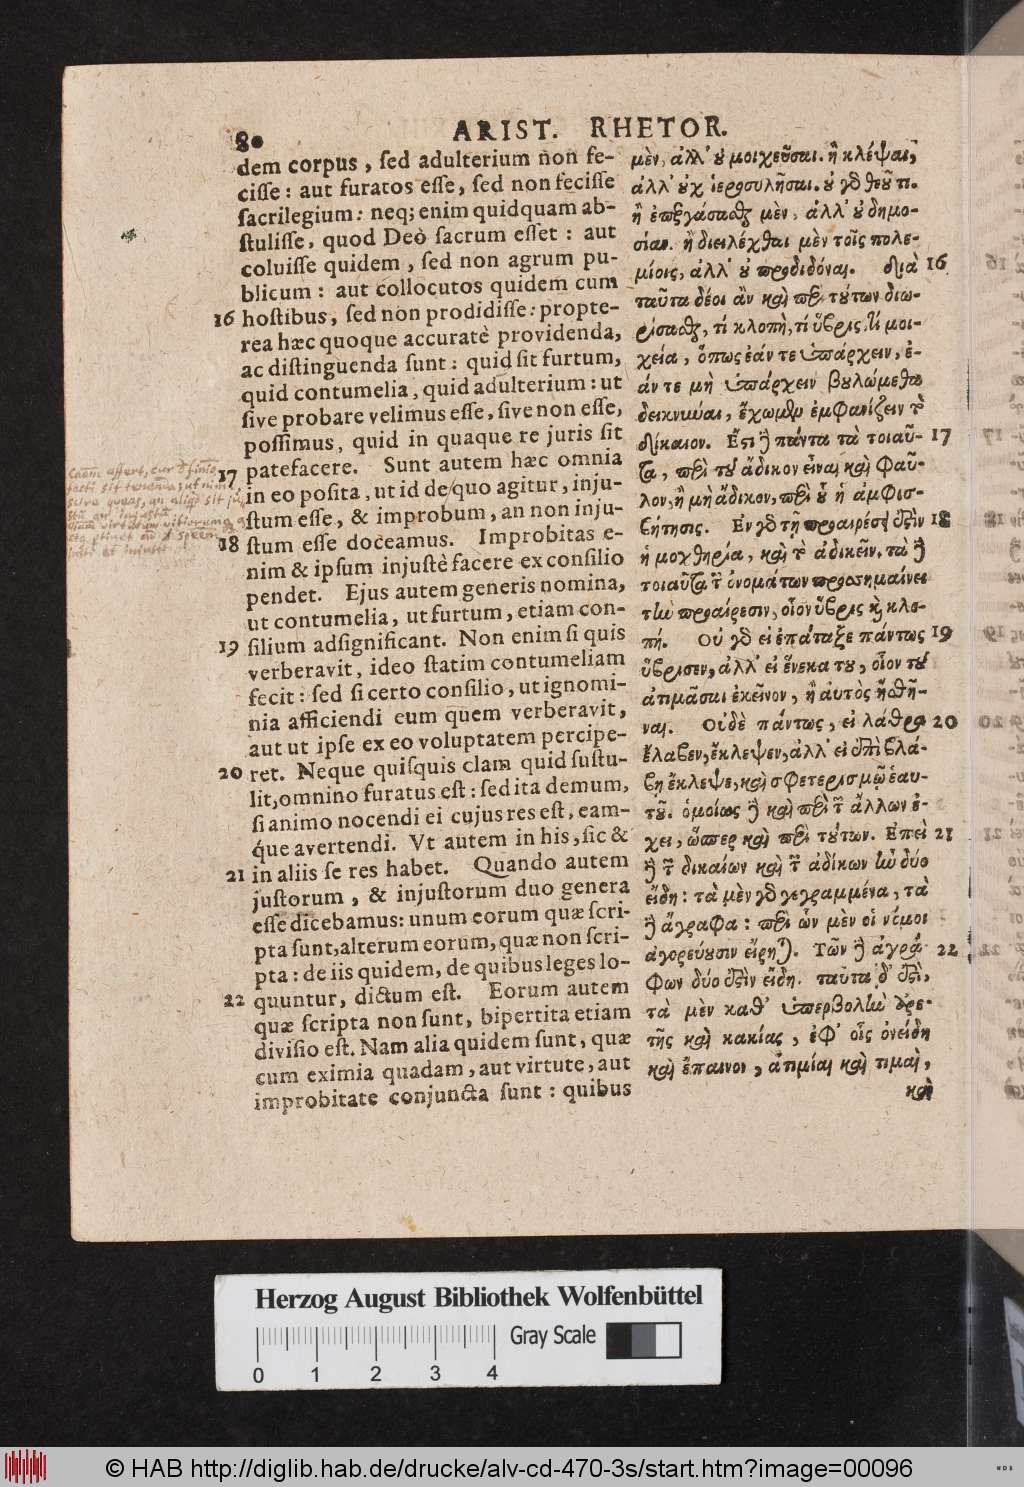 80
ARIST. RHETOR.
dem corpus, sed adulterium non fe-
cisse: aut furatos esse, sed non fecisse
sacrilegium: neq; enim quidquam ab-
stulisse, quod Deò sacrum esset: aut
coluisse quidem, sed non agrum pu-
blicum: aut collocutos quidem cum
16 hostibus, sed non prodidisse: propte-
rea hæc quoque accuratè providenda,
ac distinguenda sunt: quid sit furtum,
quid contumelia, quid adulterium: ut
sive probare velimus esse, sive non esse,
possimus, quid in quaque re juris sit
17 patefacere. Sunt autem hæc omnia
in eo posita, ut id de quo agitur, inju-
stum esse, & improbum, an non inju-
18 stum esse doceamus. Improbitas e-
nim & ipsum injustè facere ex consilio
pendet. Ejus autem generis nomina,
ut contumelia, ut furtum, etiam con-
19 silium adsignificant. Non enim si quis
verberavit, ideo statim contumeliam
fecit: sed si certo consilio, ut ignomi-
nia afficiendi eum quem verberavit,
aut ut ipse ex eo voluptatem percipe-
20 ret. Neque quisquis clam quid sustu-
lit, omnino furatus est: sed ita demum,
si animo nocendi ei cujus res est, eam-
que avertendi. Vt autem in his, sic &
21 in aliis se res habet. Quando autem
justorum, & injustorum duo genera
esse dicebamus: unum eorum quæ scri-
pta sunt, alterum eorum, quæ non scri-
pta: de iis quidem, de quibus leges lo-
22 quuntur, dictum est. Eorum autem
quæ scripta non sunt, bipertita etiam
divisio est. Nam alia quidem sunt, quæ
cum eximia quadam, aut virtute, aut
improbitate conjuncta sunt: quibus
μὲν, ἀλλ' οὐ μοιχεῦσαι. ἢ κλέψαι,
ἀλλ' οὐχ ἱεροσυλῆσαι. οὐ γὸ θεοῦ τι.
ἢ ἐπεργάσασθαι μὲν, ἀλλ' οὐ δημο-
σίαν. ἢ διειλέχθαι μὲν τοῖς πολε-
μίοις, ἀλλ' οὐ προδιδόναι. διὰ 16
ταῦτα δέοι ἂν καὶ περὶ τούτων διω-
ρίσασθαι, τί κλοπὴ, τί ὕβρις, τί μοι-
χεία, ὅπως ἐάν τε ὑπάρχειν, ἐ-
άν τε μὴ ὑπάρχειν βουλώμεθα
δεικνύναι, ἔχωμεν ἐμφανίζειν τὸ
δίκαιον. Ἔστι δὲ πάντα τὰ τοιαῦ- 17
τα, περὶ τοῦ ἄδικον εἶναι καὶ φαῦ-
λον, ἢ μὴ ἄδικον, περὶ οὗ ἡ ἀμφισ-
βήτησις. Ἐν γὸ τῇ προαιρέσει ὅστὶν 18
ἡ μοχθηρία, καὶ τὸ ἀδικεῖν. τὰ δὲ
τοιαῦτα τῶν ὀνομάτων προσημαίνει
τὴν προαίρεσιν, οἷον ὕβρις καὶ κλο-
πή. Οὐ γὸ εἰ ἐπάταξε πάντως 19
ὕβρισεν, ἀλλ' εἰ ἕνεκά του, οἷον τοῦ
ἀτιμᾶσαι ἐκεῖνον, ἢ αὐτὸς ἡσθῆ-
ναι. Οὐδὲ πάντως, εἰ λάθρα 20
ἔλαβεν, ἔκλεψεν, ἀλλ' εἰ ἐπὶ βλά-
βῃ ἔκλεψε, καὶ σφετερισμῷ ἑαυ-
τοῦ. ὁμοίως δὲ καὶ περὶ τῶν ἄλλων ἔ-
χει, ὥσπερ καὶ περὶ τούτων. Ἐπεὶ 21
δὲ τῶν δικαίων καὶ τῶν ἀδίκων ἦν δύο
εἴδη: τὰ μὲν γὸ γεγραμμένα, τὰ
δὲ ἄγραφα: περὶ ὧν μὲν οἱ νόμοι
ἀγορεύουσιν εἴρηται. Τῶν δὲ ἀγρά- 22
φων δύο ἐστὶν εἴδη. ταῦτα δ' ἐστὶ,
τὰ μὲν καθ' ὑπερβολὴν ἀρε-
τῆς καὶ κακίας, ἐφ' οἷς ὀνείδη
καὶ ἔπαινοι, ἀτιμίαι καὶ τιμαὶ,
καὶ
Herzog August Bibliothek Wolfenbüttel
0 1 2 3 4
Gray Scale
© HAB http://diglib.hab.de/drucke/alv-cd-470-3s/start.htm?image=00096